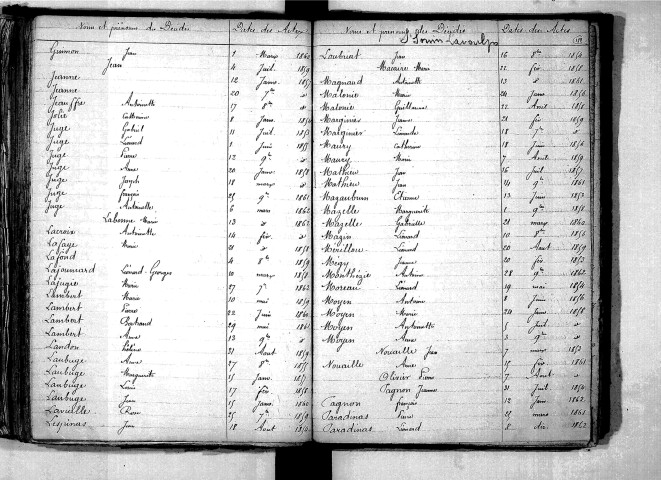 Noms et prénoms des Décédés Dates des Actes
Guimon Jean 1 Mars 1862
Jean 4 Juil. 1859
Jeanne 12 Janv. 1857
Jeanne 20 7bre
Jeauffre Antoinette 17 8bre
Jolie Catherine 8 Janv.
Juge Gabriel 11 Juil. 1853
Juge Léonard 1 Juin 1855
Juge Pierre 12 9bre
Juge Anne 20 Janv. 1858
Juge Joseph 18 mars
Juge françois 25 9bre 1861
Juge Antoinette 6 mars 1862
Labonne Marie 13 1862
Lacroix Antoinette 14 fév.
Lafaye Marie 21 1858
Lafond 4 8bre 1859
Lajoumard Léonard Georges 10 mars 1858
Lajugie Marie 27 7bre 1862
Lambert Marie 10 mai 1859
Lambert Pierre 22 Juin 1860
Lambert Bertrand 29 mai 1861
Lambert Anne 13 9bre
Landon Hélène 21 Aout 1859
Laubuge Anne 27 8bre 1855
Laubuge Marguerite 15 Janv. 1857
Laubuge Louis fév. 1858
Laubuge Jean 15 Janv. 1860
Lavialle Pierre 25 7bre 1859
Lespinas Jean 18 Aout
Noms et prénoms des Décédés Dates des Actes
St Sornin Lavaulps
Loubriat Jean 16 8bre 1854
Macaire Marie 22 fév. 1858
Magnaud Antoinette 13 1861
Malonie Marie 24 Janv. 1856
Malonie Guillaume 22 Avril 1858
Marginier Jeanne 21 fév. 1859
Marginier Léonarde 18 7bre
Maury Catherine 18 Juin 1856
Maury Marie 7 Avril 1859
Mathieu Jean 16 Juil. 1857
Mathieu Jean 14 9bre 1861
Mazaubrun Etienne 13 Juin 1853
Mazelle Marguerite 17 9bre 1858
Mazelle Gabrielle 21 mars 1860
Mazin Léonard 10 8bre 1856
Mérillou Léonard 20 Aout 1859
Mégy Jeanne 20 fév. 1853
Monthézie Antoine 28 9bre 1862
Moreau Léonard 19 mai 1854
Moyen Antoine 8 Juin 1856
Moyen Marie 24 Janv. 1858
Moyen Antoinette 5 Juil.
Moyen Anne 3 9bre
Nouaille Jean 7 mars 1853
Nouaille Anne 15 fév. 1861
Olivier Pierre 7 Aout
Pagnon Jeanne 31 Juil. 1854
Pagnon françois 12 Janv. 1862
Paradinas Pierre 21 mars 1861
Paradinas Léonard 8 déc. 1862